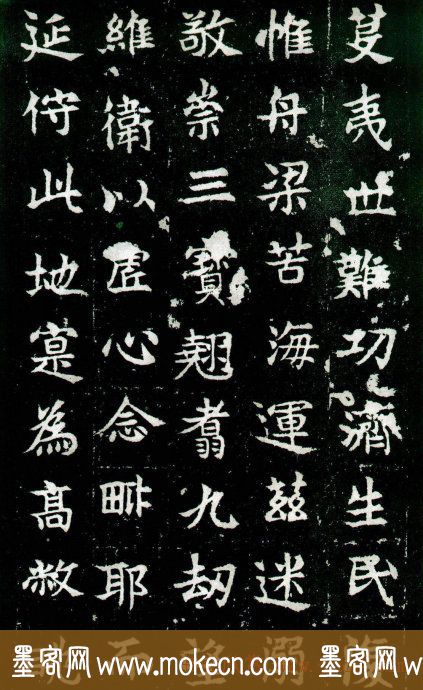 芟夷世難功濟生民
惟舟梁苦海運茲迷
敬崇三寶翹翥九劫
維衛以虛心念毗耶
延佇此地寔為高敞
墨客网 www.mokecn.com 墨客网